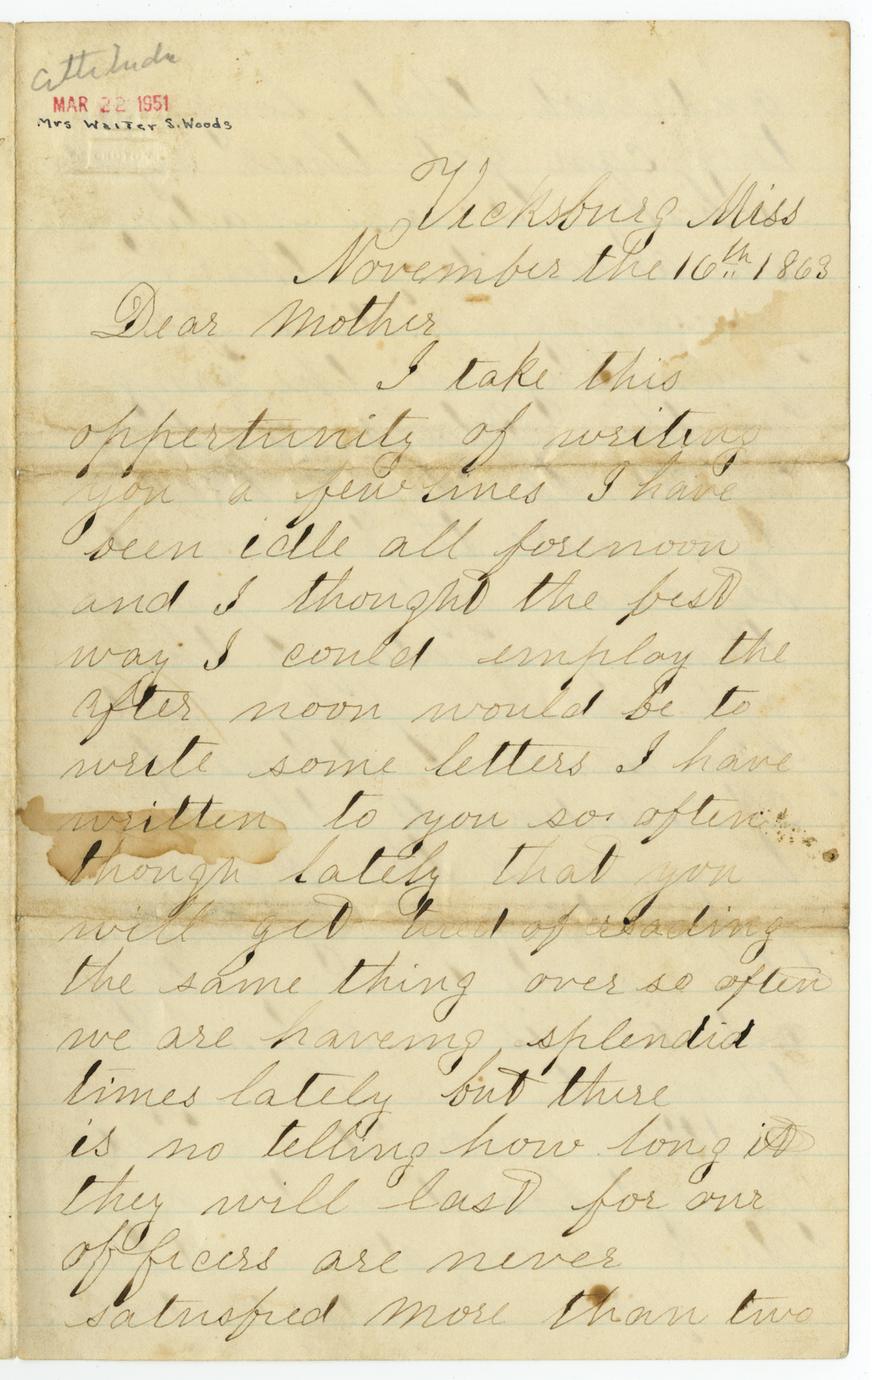 MAR 22 1951
Mrs Walter S. Woods
Vicksburg Miss
November the 16th 1863
Dear Mother
I take this
oppertunity of writing
you a few lines I have
been idle all forenoon
and I thought the best
way I could employ the
after noon would be to
write some letters I have
written to you so often
though lately that you
will get tired of reading
the same thing over so often
we are haveing splendid
times lately but there
is no telling how long it
they will last for our
officers are never
satisfied more than two